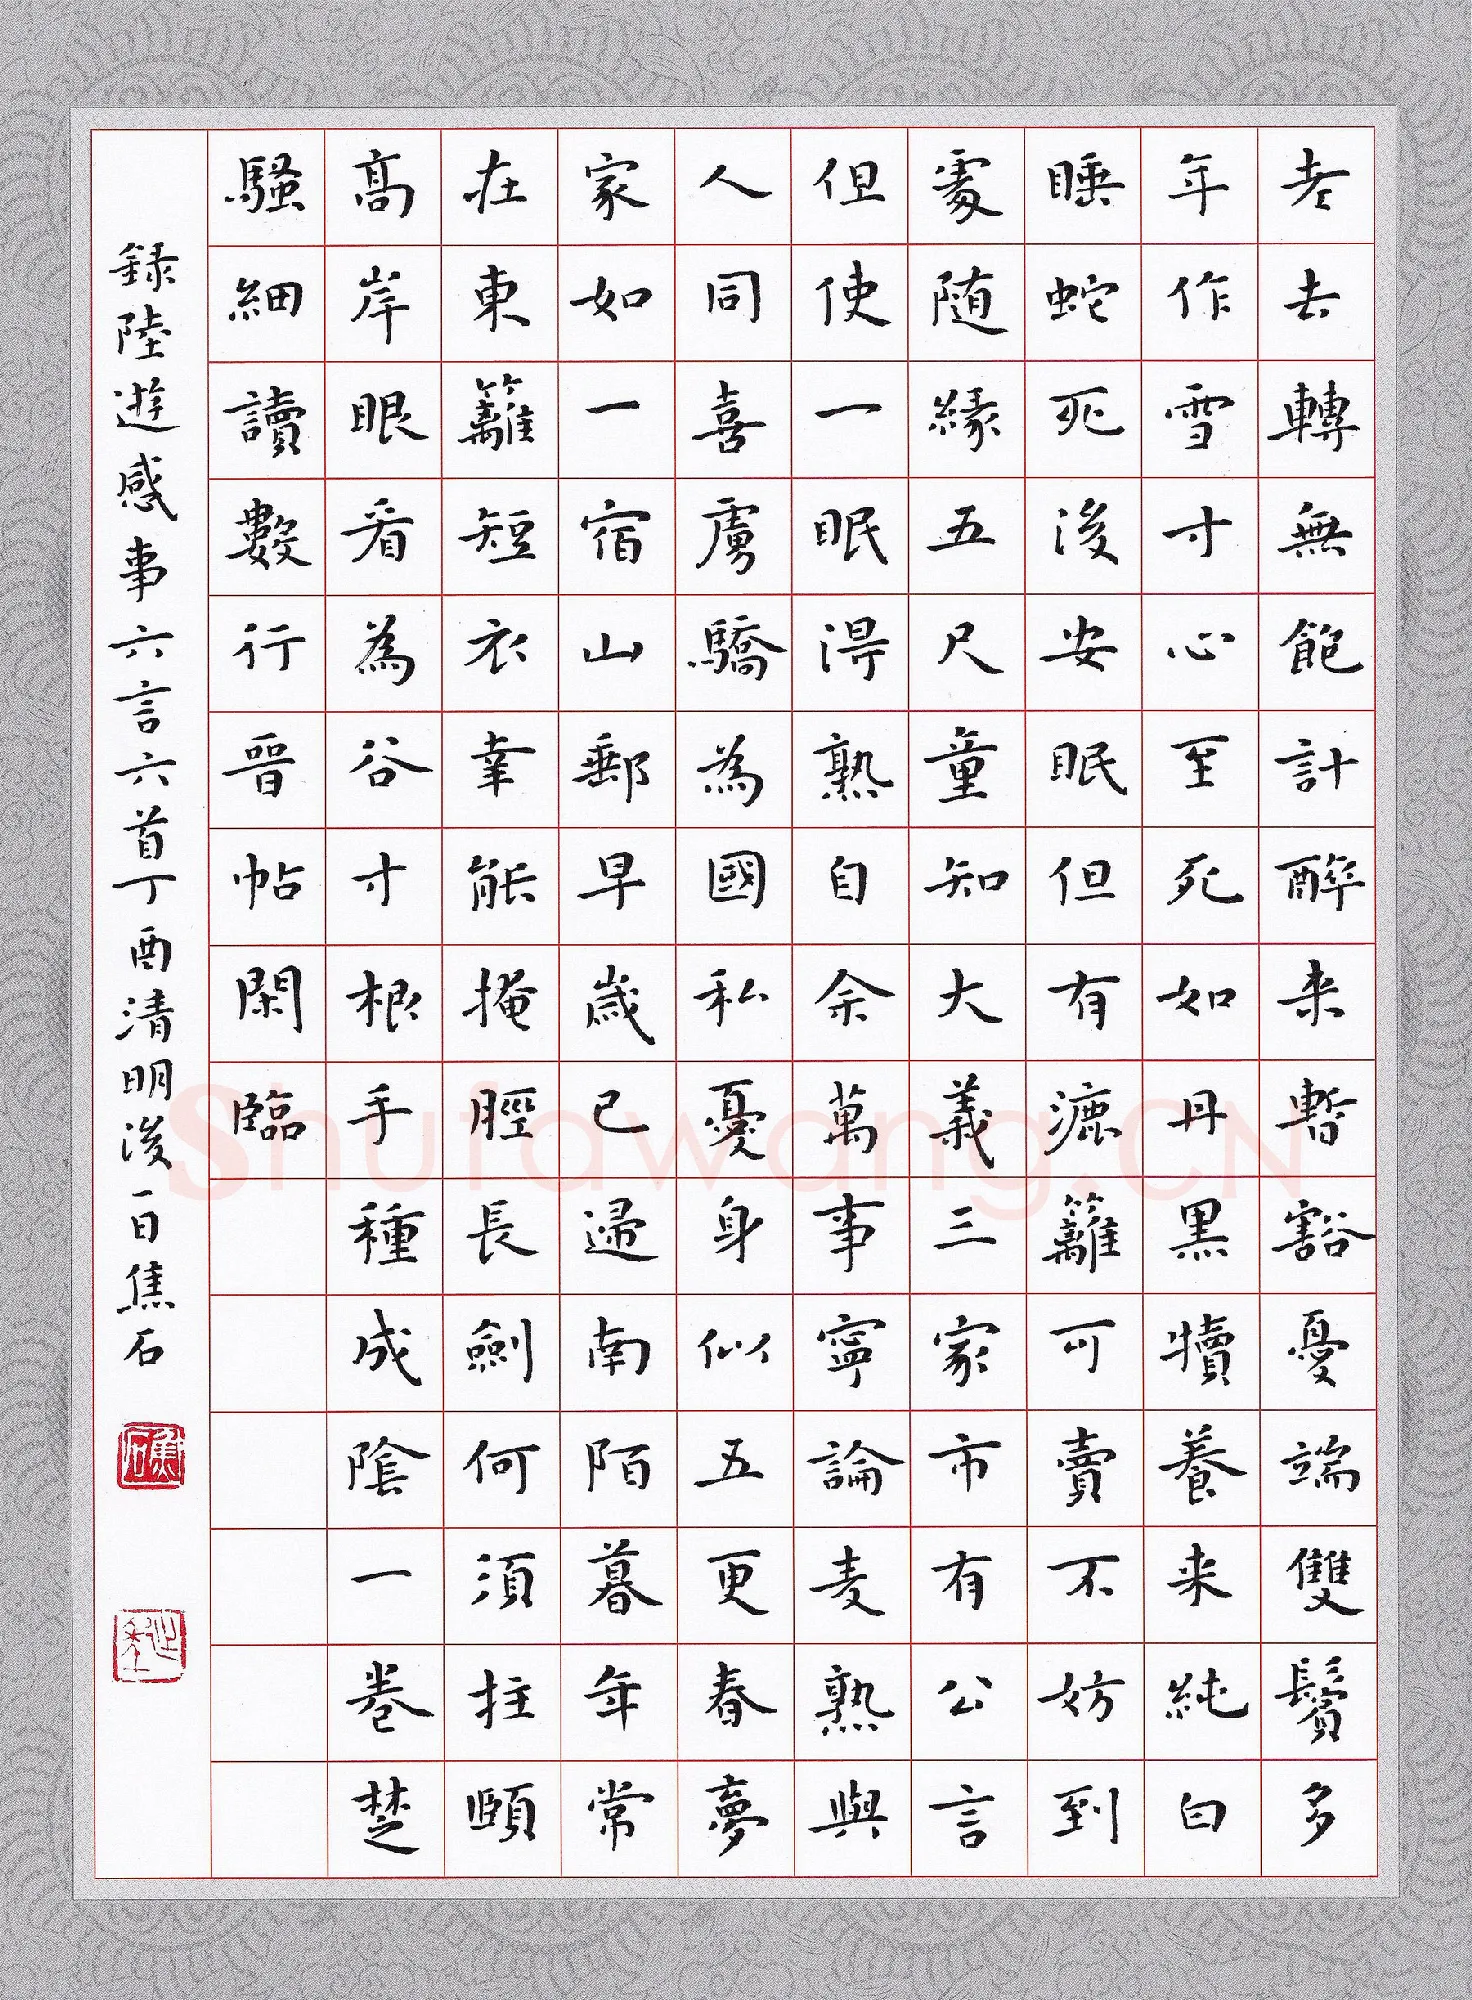 老去轉無飽計醉来暫豁憂端雙鬢多
年作雪寸心至死如丹黑犢養来純白
睡蛇死後安眠但有漉籬可賣不妨到
處随緣五尺童知大義三家市有公言
但使一眠得熟自余萬事寧論麦熟與
人同喜虜驕為國私憂身似五更春夢
家如一宿山郵早歲已歸南陌暮年常
在東籬短衣幸能掩脛長劍何須拄頤
高岸眼看為谷寸根手種成陰一卷楚
騷細讀數行晉帖閑臨
録陸遊感事六言六首丁酉清明後一日焦石
焦石
Shufawang.CN